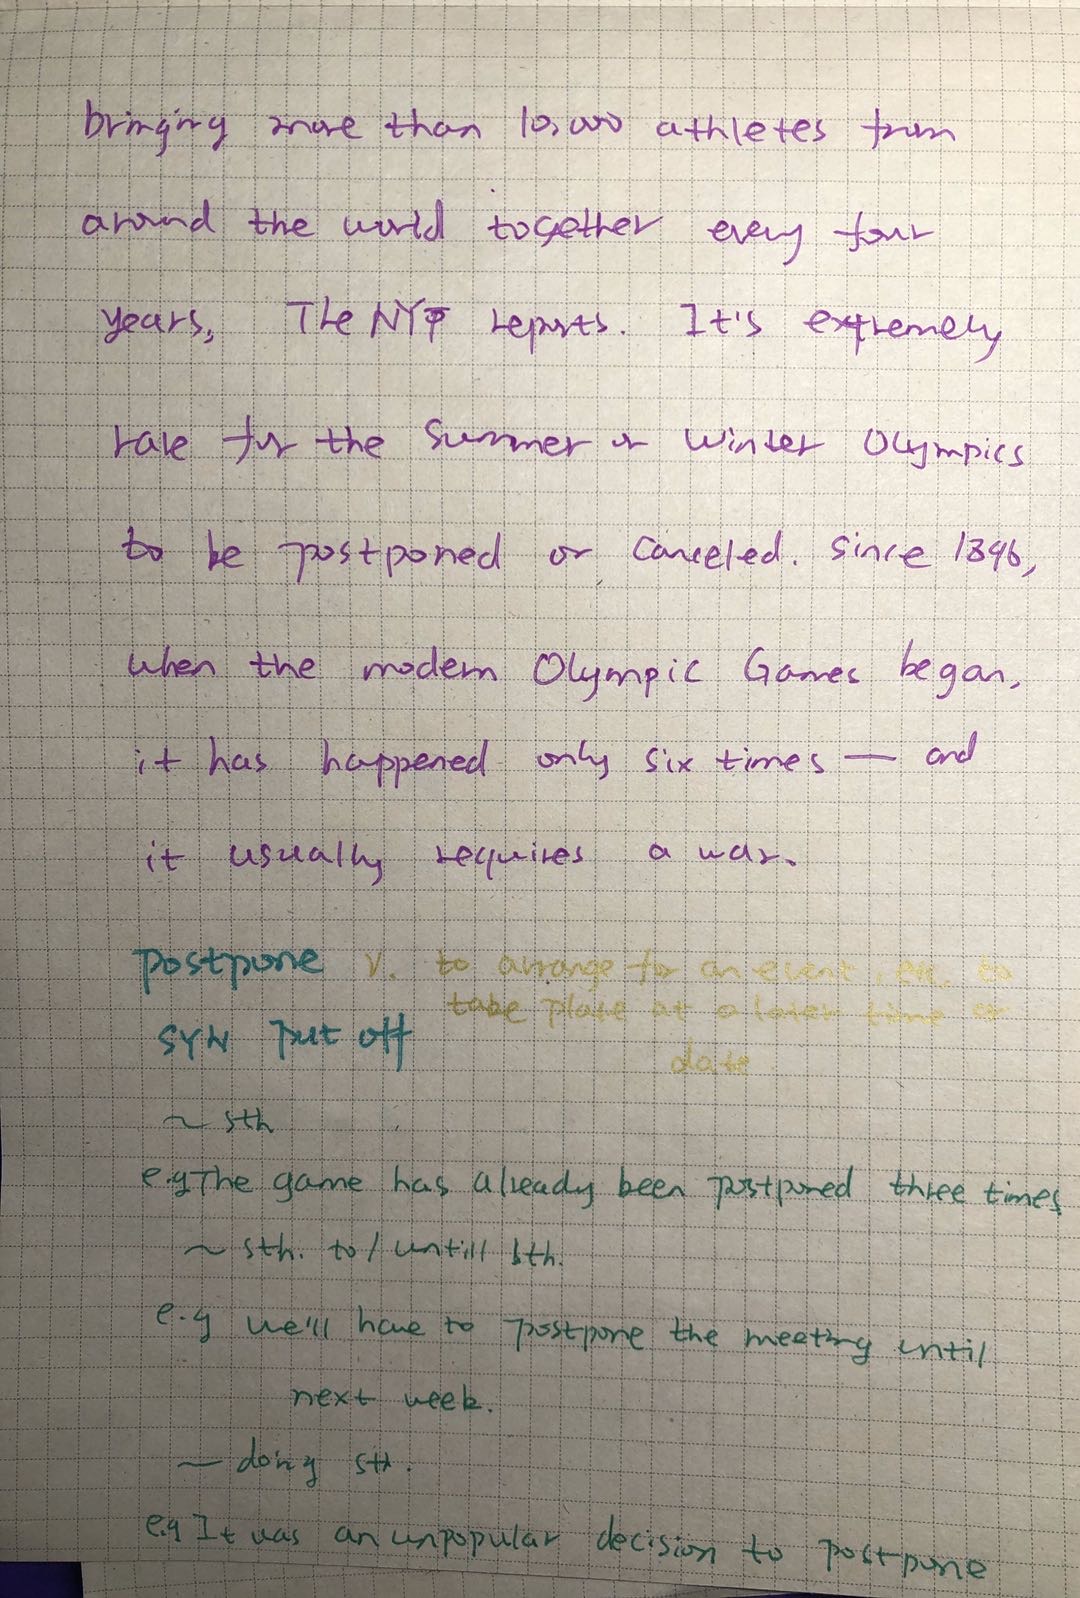 bringing more than 10,000 athletes from
around the world together every four
years, The NYT reports. It's extremely
rare for the Summer or Winter Olympics
to be postponed or canceled. Since 1896,
when the modern Olympic Games began,
it has happened only six times — and
it usually requires a war.
postpone v. to arrange for an event, etc. to
take place at a later time or
date.
SYN put off
~ sth
e.g The game has already been postponed three times
~ sth. to / untill sth.
e.g we'll have to postpone the meeting until
next week.
~ doing sth.
e.g It was an unpopular decision to postpone